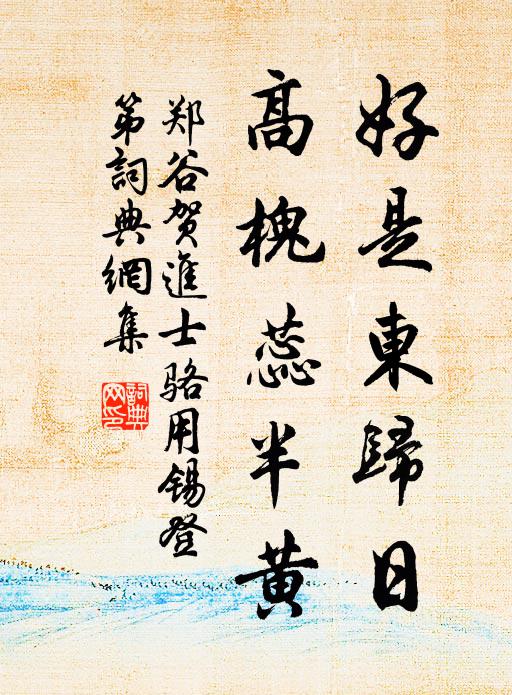 好是東歸日
高槐蕊半黃
郑谷贺進士骆用锡登
第詞典網集
詞典
网印